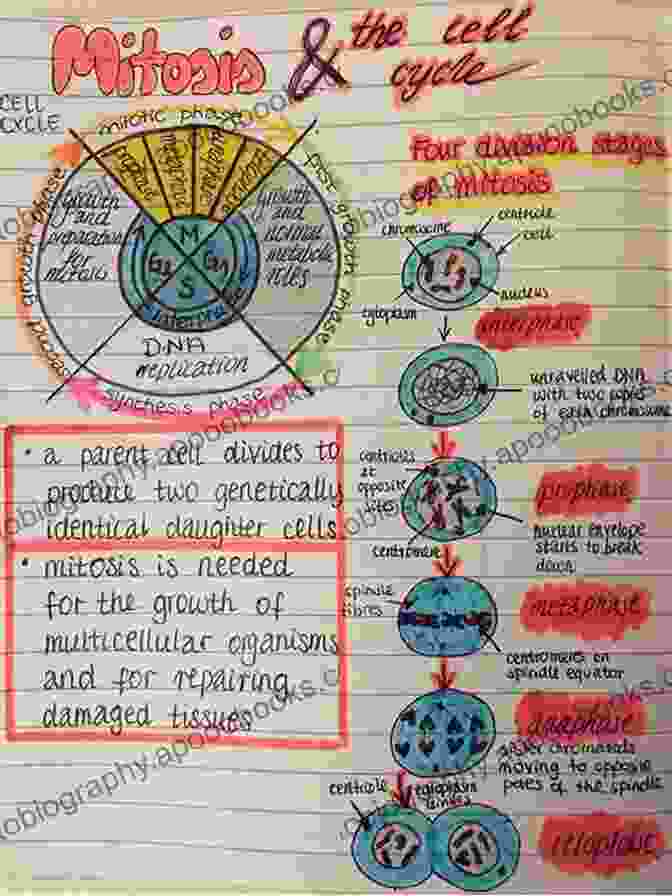 Mitosis & the cell
cycle
CELL
CYCLE
mitotic phase
prophase
metaphase
anaphase
telophase
first growth phase
second growth phase
growth
and
preparation
for
mitosis
growth
and
normal
metabolic
roles
M
G2
G1
S
interphase
DNA
replication
synthesis phase
Four division stages
of mitosis
chromosome
centriole
cell
nucleus
cytoplasm
interphase
unravelled DNA
with two copies
of each chromosome
• a parent cell divides to
produce two genetically
identical daughter cells
• mitosis is needed
for the growth of
multicellular organisms
and for repairing
damaged tissues
centrioles
at
opposite
sites
centromere
prophase
nuclear envelope
starts to break
down
spindle
fibres
metaphase
centromeres on
spindle equator
anaphase
sister chromatids
moving to opposite
poles of the spindle
centriole
cytoplasm
divides
telophase